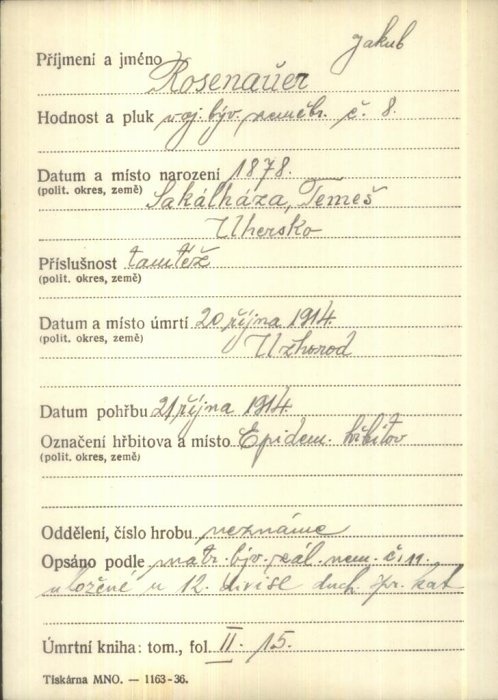 Jakub
Příjmení a jméno Rosenauer
Hodnost a pluk voj. býv. č. 8.
Datum a místo narození 1878.
(polit. okres, země) Sakálháza, Temeš
Uhersko
Příslušnost tamtéž
(polit. okres, země)
Datum a místo úmrtí 20. října 1914.
(polit. okres, země) Užhorod
Datum pohřbu 21. října 1914.
Označení hřbitova a místo Epidem. hřbitov
(polit. okres, země)
Oddělení, číslo hrobu neznámé
Opsáno podle matr. býv. zál. nem. č. 11.
uložené u 12. divise duch. spr. kat
Úmrtní kniha: tom., fol. II. 15.
Tiskárna MNO. — 1163-36.